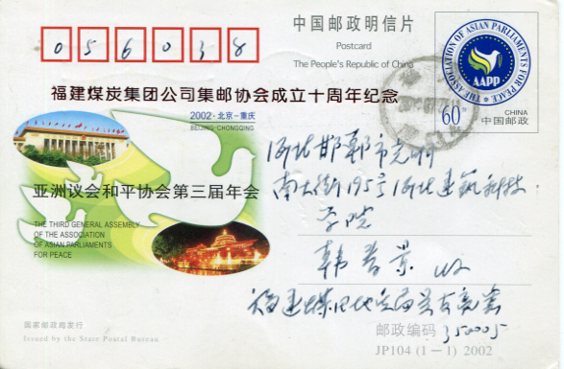 056038
中国邮政明信片
Postcard
The People's Republic of China
THE ASSOCIATION OF ASIAN PARLIAMENTS FOR PEACE
AAPP
60分
CHINA
中国邮政
福建煤炭集团公司集邮协会成立十周年纪念
2002·北京－重庆
BEIJING-CHONGQING
亚洲议会和平协会第三届年会
THE THIRD GENERAL ASSEMBLY
OF THE ASSOCIATION
OF ASIAN PARLIAMENTS
FOR PEACE
河北邯郸市光明
南大街195号河北建筑科技
学院
韩 景 收
福建煤田地质局
国家邮政局发行
Issued by the State Postal Bureau
邮政编码 350005
JP104 (1－1) 2002